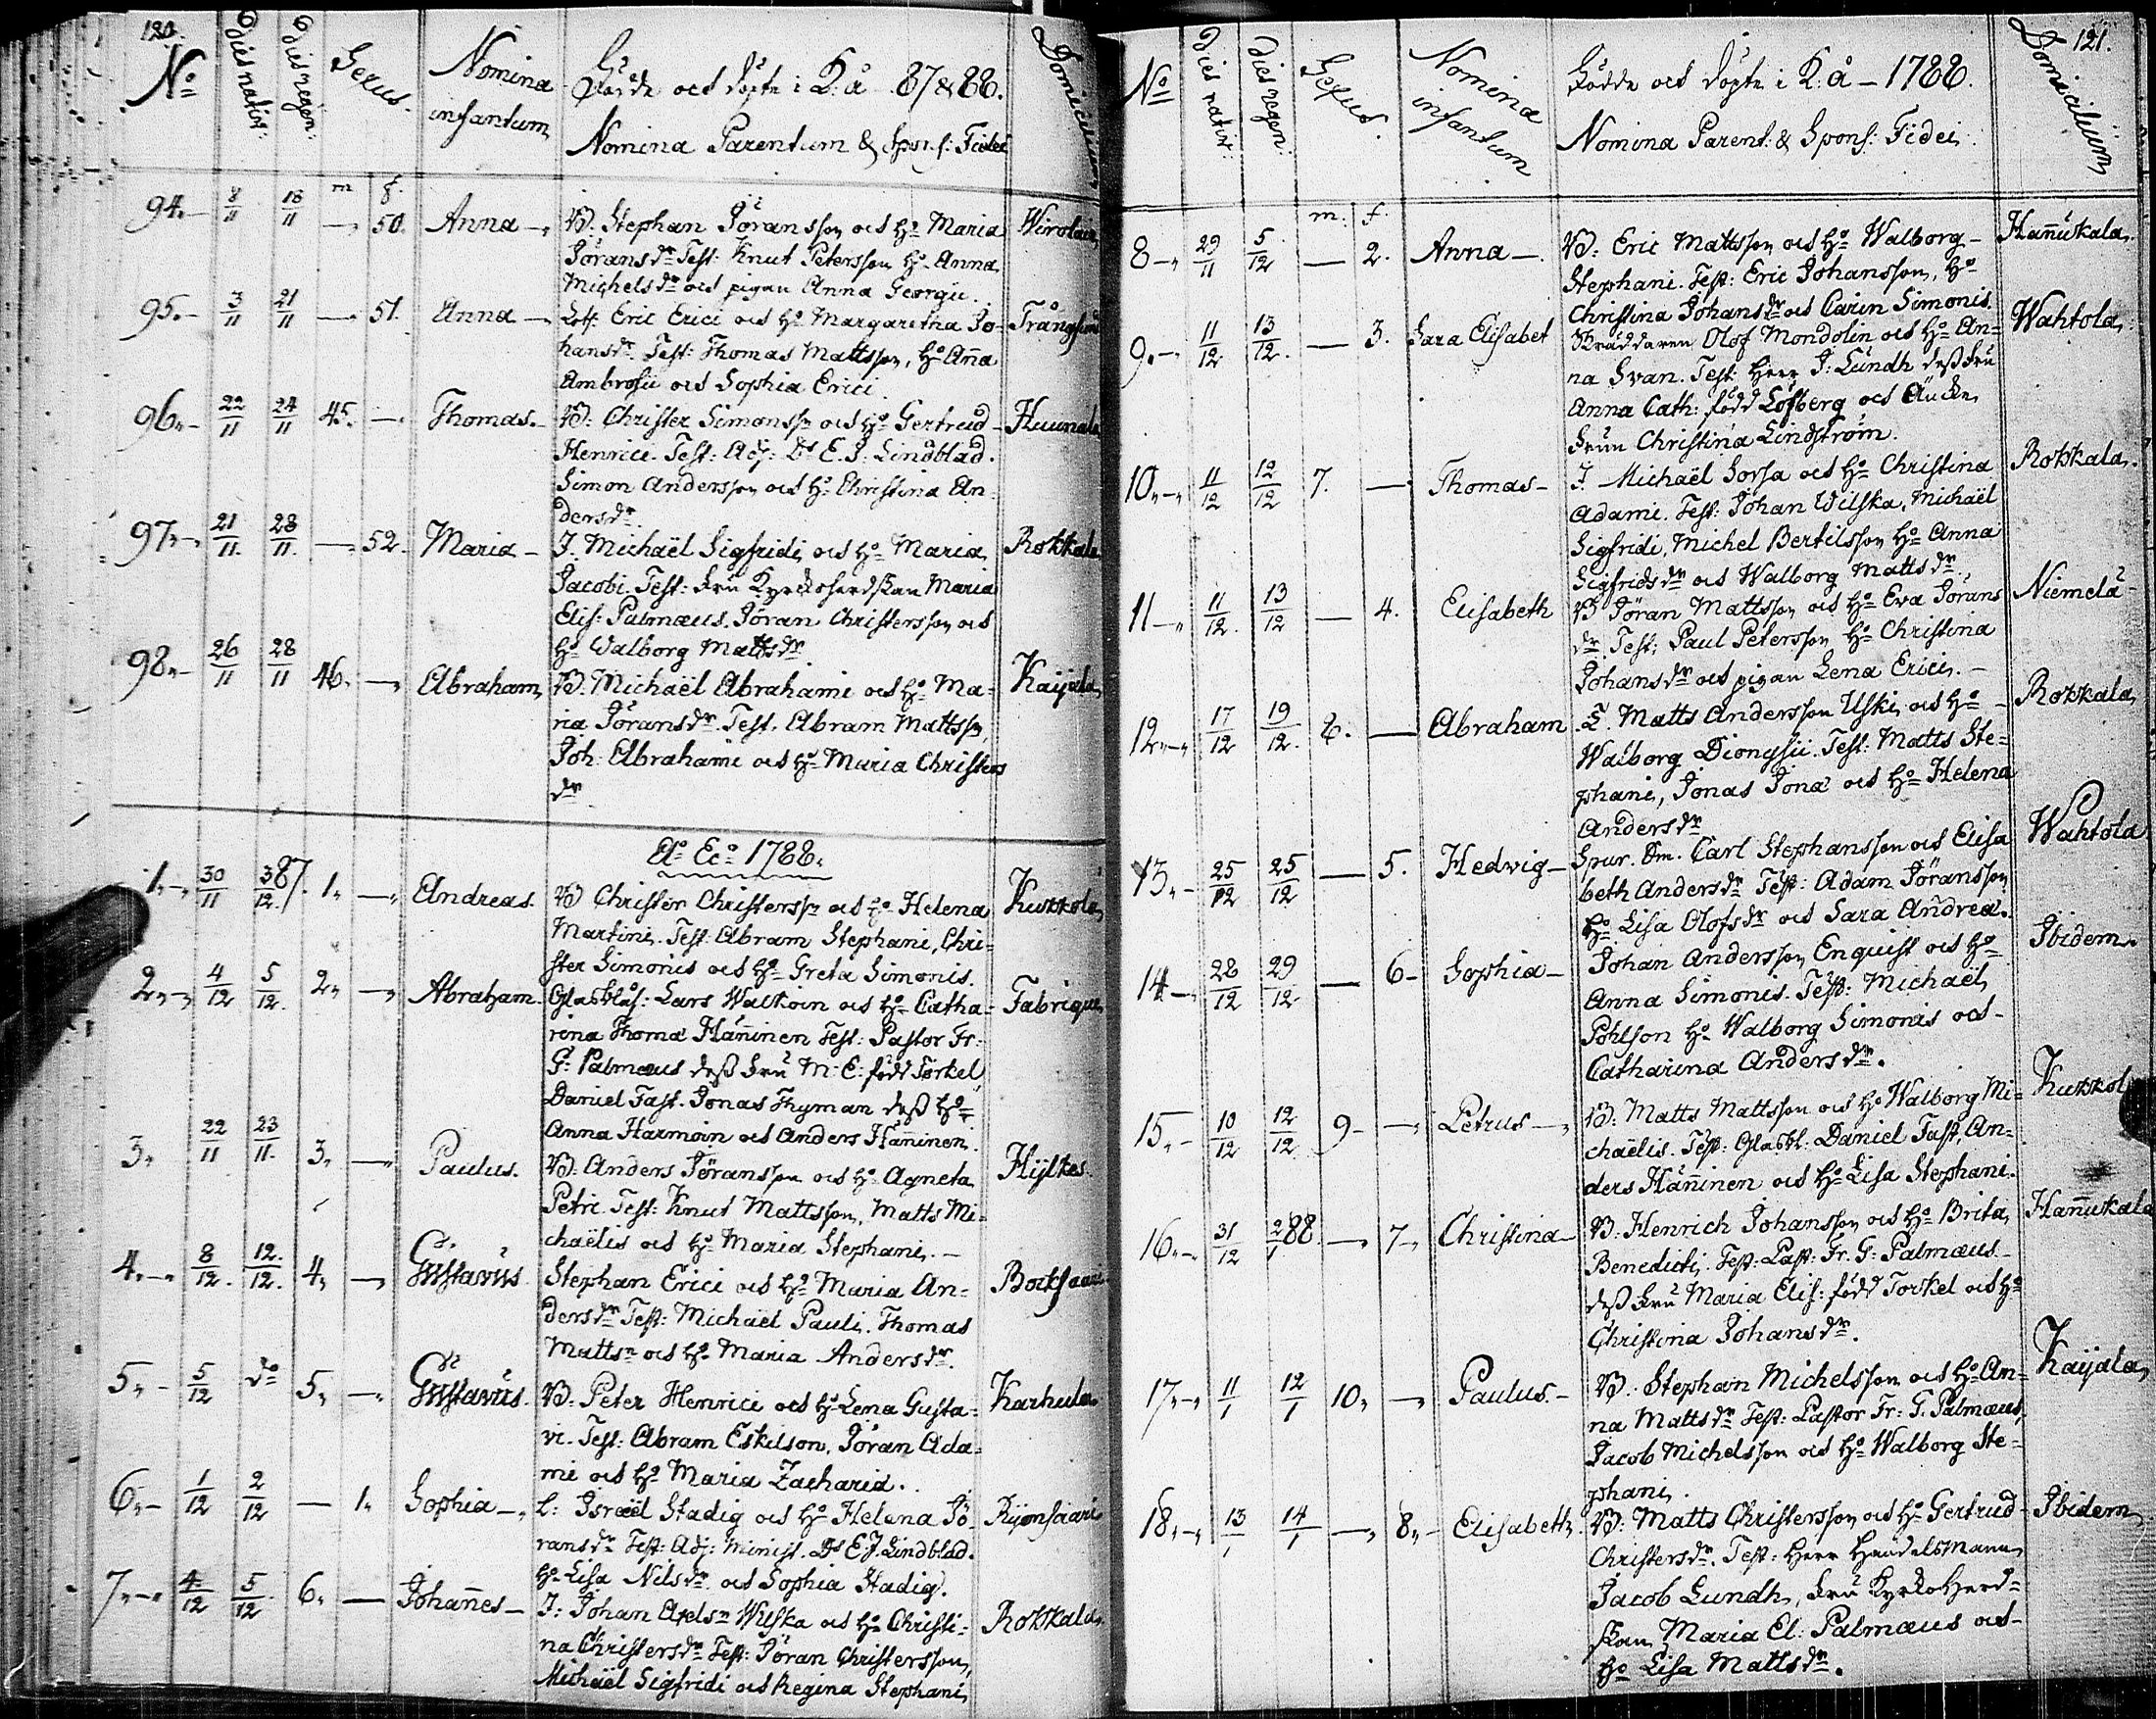 120.
No Dies nativ: Dies regen: Sexus. Nomina infantum Födde och döpte i K: å 87 & 88. Domicilium
Nomina Parentum & Spons: Fidei
m f.
94. 8/11 18/11 — 50. Anna — B. Stephan Jöransson och Ho Maria Wirolain
Jöransdr Test: Knut Petersson Ho Anna
Michelsdr och pigan Anna Georgii.
95. 3/11 21/11 — 51. Anna — Lots: Eric Erici och Ho Margaretha Jo= Trångsund
hansdr. Test: Thomas Mattsson, Ho Anna
Ambrosii och Sophia Erici.
96. 22/11 24/11 45. — Thomas. B: Christer Simonss. och Ho Gertrud Huunala
Henrici. Test: Adj: Dr E. J: Lindblad.
Simon Andersson och Ho Christina An
dersdr.
97. 21/11. 28/11. — 52. Maria — J. Michaël Sigfridi och Ho Maria Rokkala
Jacobi. Test: Fru Kyrckoherdskan Maria
Elis: Palmæus. Jöran Christersson och
Ho Walborg Mattsdr
98. 26/11 28/11 46. — Abraham B. Michaël Abrahami och Ho Ma= Kaijala
ria Jöransdr. Test. Abram Mattss.
Joh: Abrahami och Ho Maria Christers
dr
Ao Eco 1788.
1. 30/11 3/12. 87. 1. — Andreas. B Christer Christerss. och Ho Helena Kukkola
Martini. Test: Abram Stephani, Chri=
ster Simonis och Ho Greta Simonis.
2. 4/12 5/12. 2. — Abraham. Glasblås: Lars Walkoin och Ho Catha= Fabrique
rina Thomæ Hänninen Test: Pastor Fr:
G: Palmæus dess Fru M: E: född Törkel
Daniel Fast. Jonas Thyman dess Ho
Anna Harmoin och Anders Hänninen.
3. 22/11 23/11. 3. — Paulus. B: Anders Jöransson och Ho Agneta Hijltes.
Petri. Test: Knut Mattsson, Matts Mi=
chaëlis och Ho Maria Stephani. —
4. 8/12. 12./12. 4. — Gustavus. Stephan Erici och Ho Maria An= Bocksaari
dersdr Test: Michaël Pauli. Thomas
Mattsn och Ho Maria Andersdr.
5. 5/12 do 5. — Gustavus. B: Peter Henrici och Ho Lena Gusta= Karhula
vi. Test: Abram Eskilson, Jöran Ada=
mi och Ho Maria Zachariæ.
6. 1/12 2/12 — 1. Sophia — L: Israël Stadig och Ho Helena Jö Rijonsaari
ransdr Test: Adj: Minist. Dr E. J. Lindblad.
Ho Lisa Nilsdr och Sophia Stadig.
7. 4./12 5/12 6. — Johannes — J: Johan Axelsn Wilska och Ho Christi= Rokkala
na Christersdr Test: Jöran Christersson,
Michaël Sigfridi och Regina Stephani
121.
No Dies nativ: Dies regen: Sexus. Nomina infantum Födde och döpte i K: å — 1788. Domicilium
Nomina Parent: & Spons: Fidei
m: f.
8 29/11 5/12 — 2. Anna — B: Eric Mattsson och Ho Walborg Hannukala
Stephani. Test: Eric Johansson, Ho
Christina Johansdr och Carin Simonis
9. 11/12 13/12. — 3. Sara Elisabet Skräddaren Olof Mondolin och Ho An= Wahtola
na Svan. Test: Herr J: Lundh dess Fru
Anna Cath: född Löfberg och Äncke
Frun Christina Lindström.
10. 11/12 12/12 7. — Thomas — J. Michaël Sorsa och Ho Christina Rokkala.
Adami. Test: Johan Wilska, Michaël
Sigfridi, Michel Bertilsson Ho Anna
Sigfridsdr och Walborg Mattsdr.
11 11/12. 13/12 — 4. Elisabeth B Jöran Mattsson och Ho Eva Jörans Niemelä
dr. Test: Paul Petersson Ho Christina
Johansdr och pigan Lena Erici. —
12. 17/12 19/12. 8. — Abraham T. Matts Andersson Uski och Ho Rokkala
Walborg Dionysii. Test: Matts Ste=
phani, Jonas Jonæ och Ho Helena
Andersdr
13. 25/12 25/12 — 5. Hedvig — Spur. Sm. Carl Stephansson och Elisa Wahtola
beth Andersdr Test: Adam Jöransson
Ho Lisa Olofsdr och Sara Andreæ.
14 28/12 29/12 — 6 Sophia — Johan Andersson Enquist och Ho Ibidem.
Anna Simonis. Test: Michaël
Pohlson Ho Walborg Simonis och
Catharina Andersdr.
15. 10/12 12/12 9 — Petrus — B: Matts Mattsson och Ho Walborg Mi= Kukkol
chaëlis. Test: Glasbl: Daniel Fast, An=
ders Hänninen och Ho Lisa Stephani.
16. 31/12 2/1 88. — 7 Christina — B: Henrich Johansson och Ho Brita Hannukala
Benedicti. Test: Past: Fr: G: Palmæus
dess Fru Maria Elis: född Torkel och Ho
Christina Johansdr.
17. 11/1 12/1 10. — Paulus. — B. Stephan Michelsson och Ho An= Kaijala
na Mattsdr Test: Pastor Fr: G. Palmæus,
Jacob Michelsson och Ho Walborg Ste=
phani.
18. 13/1 14/1 — 8. Elisabeth. B: Matts Christersson och Ho Gertrud Ibidem
Christersdr. Test: Herr Handelsmann
Jacob Lundh, Fru Kyrkoherd=
skan Maria El: Palmæus och
Ho Lisa Mattsdr.